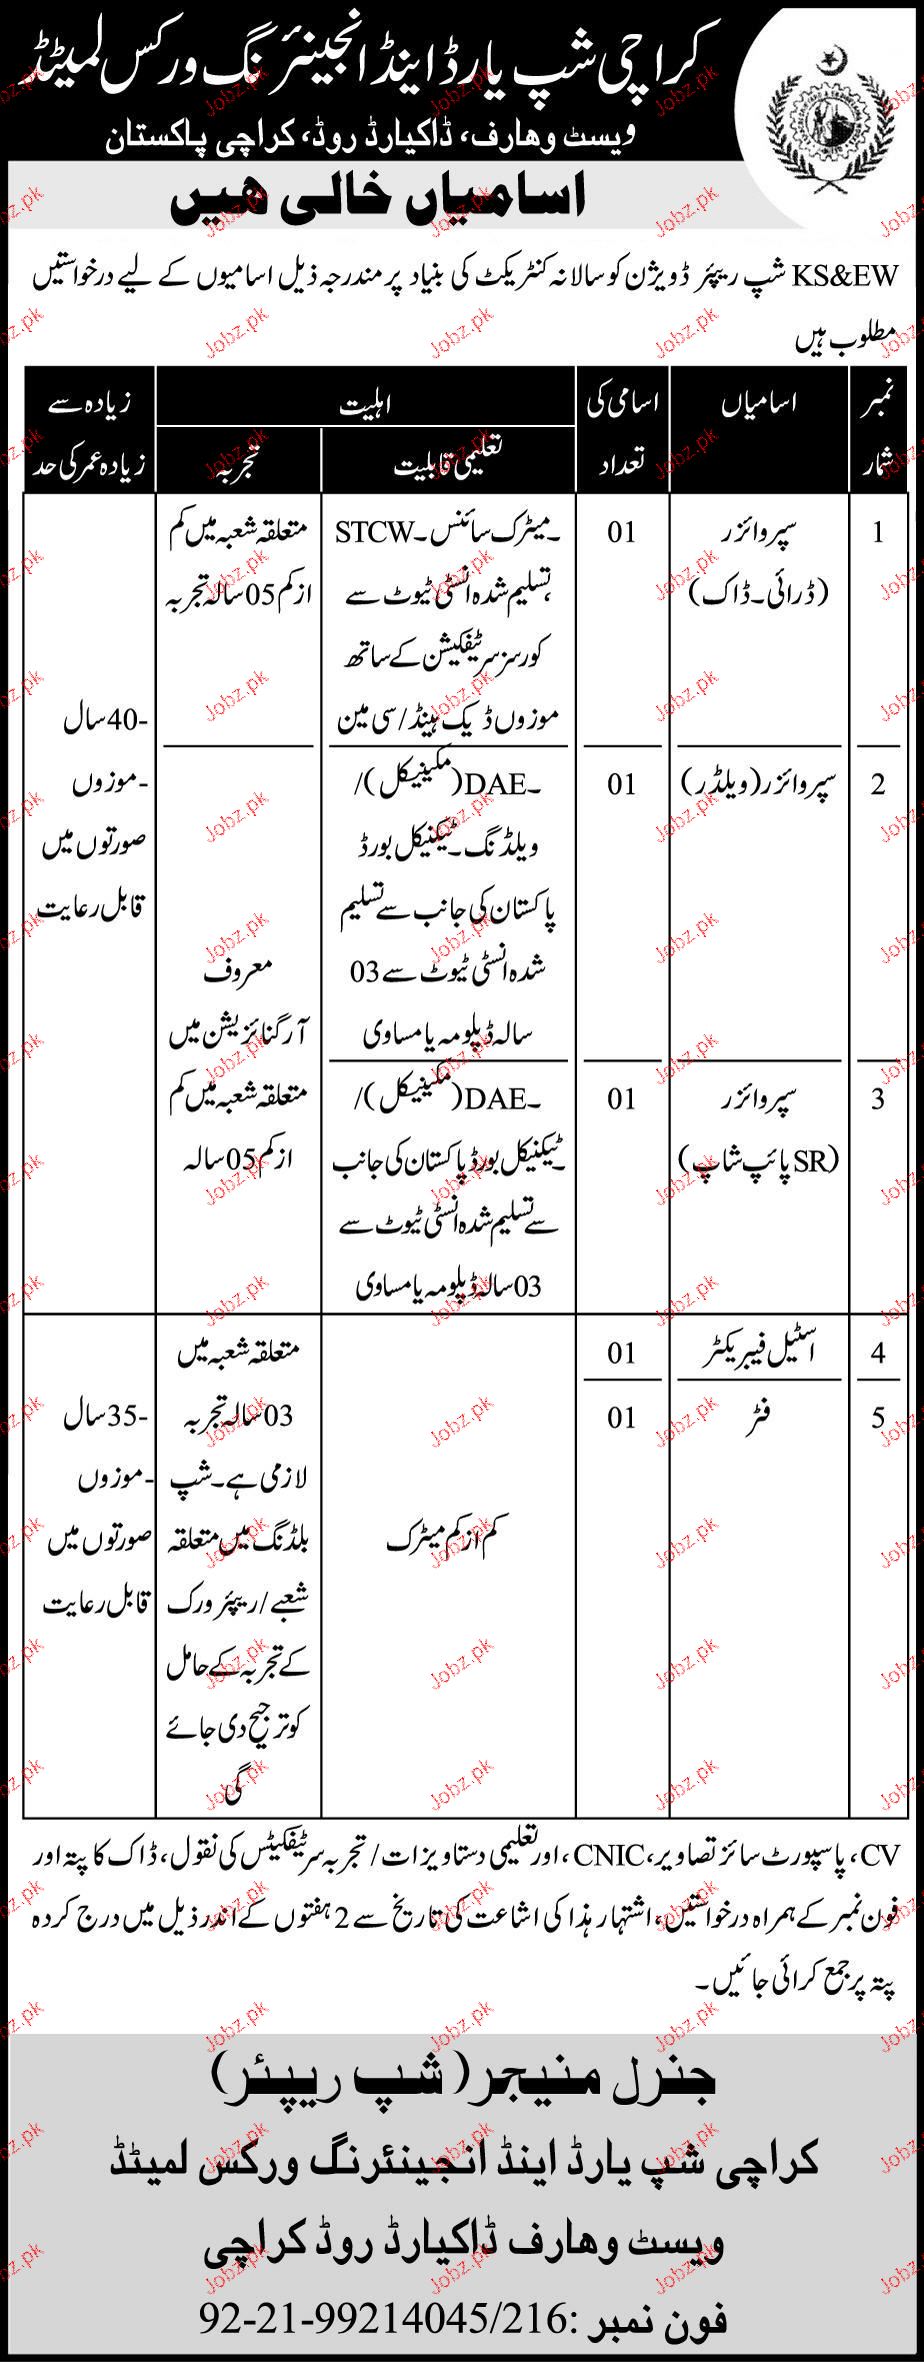 کراچی شپ یارڈ اینڈ انجینئرنگ ورکس لمیٹڈ
ویسٹ وھارف، ڈاکیارڈ روڈ، کراچی پاکستان
اسامیاں خالی ھیں
KS&EW شپ ریپئر ڈویژن کو سالانہ کنٹریکٹ کی بنیاد پر مندرجہ ذیل اسامیوں کے لیے درخواستیں
مطلوب ہیں
نمبر شمار
اسامیاں
اسامی کی تعداد
اہلیت
تعلیمی قابلیت
تجربہ
زیادہ سے زیادہ عمر کی حد
1
سپروائزر
(ڈرائی۔ڈاک)
01
۔میٹرک سائنس۔STCW
تسلیم شدہ انسٹی ٹیوٹ سے،
کورسز سرٹیفکیشن کے ساتھ
موزوں ڈیک ہینڈ/سی مین
متعلقہ شعبہ میں کم
از کم 05 سالہ تجربہ
-40 سال
-موزوں
صورتوں میں
قابل رعایت
2
سپروائزر (ویلڈر)
01
۔DAE (مکینیکل)/
ویلڈنگ۔ٹیکنیکل بورڈ
پاکستان کی جانب سے تسلیم
شدہ انسٹی ٹیوٹ سے 03
سالہ ڈپلومہ یا مساوی
معروف
آرگنائزیشن میں
متعلقہ شعبہ میں کم
از کم 05 سالہ
3
سپروائزر
(SR پائپ شاپ)
01
۔DAE (مکینیکل)/
۔ٹیکنیکل بورڈ پاکستان کی جانب
سے تسلیم شدہ انسٹی ٹیوٹ سے
03 سالہ ڈپلومہ یا مساوی
4
اسٹیل فیبریکٹر
01
5
فٹر
01
کم از کم میٹرک
متعلقہ شعبہ میں
03 سالہ تجربہ
لازمی ہے۔شپ
بلڈنگ میں متعلقہ
شعبے/ریپئر ورک
کے تجربہ کے حامل
کو ترجیح دی جائے
گی
-35 سال
-موزوں
صورتوں میں
قابل رعایت
CV، پاسپورٹ سائز تصاویر، CNIC، اور تعلیمی دستاویزات/تجربہ سرٹیفکیٹس کی نقول، ڈاک کا پتہ اور
فون نمبر کے ہمراہ درخواستیں، اشتہار ہذا کی اشاعت کی تاریخ سے 2 ہفتوں کے اندر ذیل میں درج کردہ
پتہ پر جمع کرائی جائیں۔
جنرل منیجر (شپ ریپئر)
کراچی شپ یارڈ اینڈ انجینئرنگ ورکس لمیٹڈ
ویسٹ وھارف ڈاکیارڈ روڈ کراچی
فون نمبر: 92-21-99214045/216
Jobz.pk